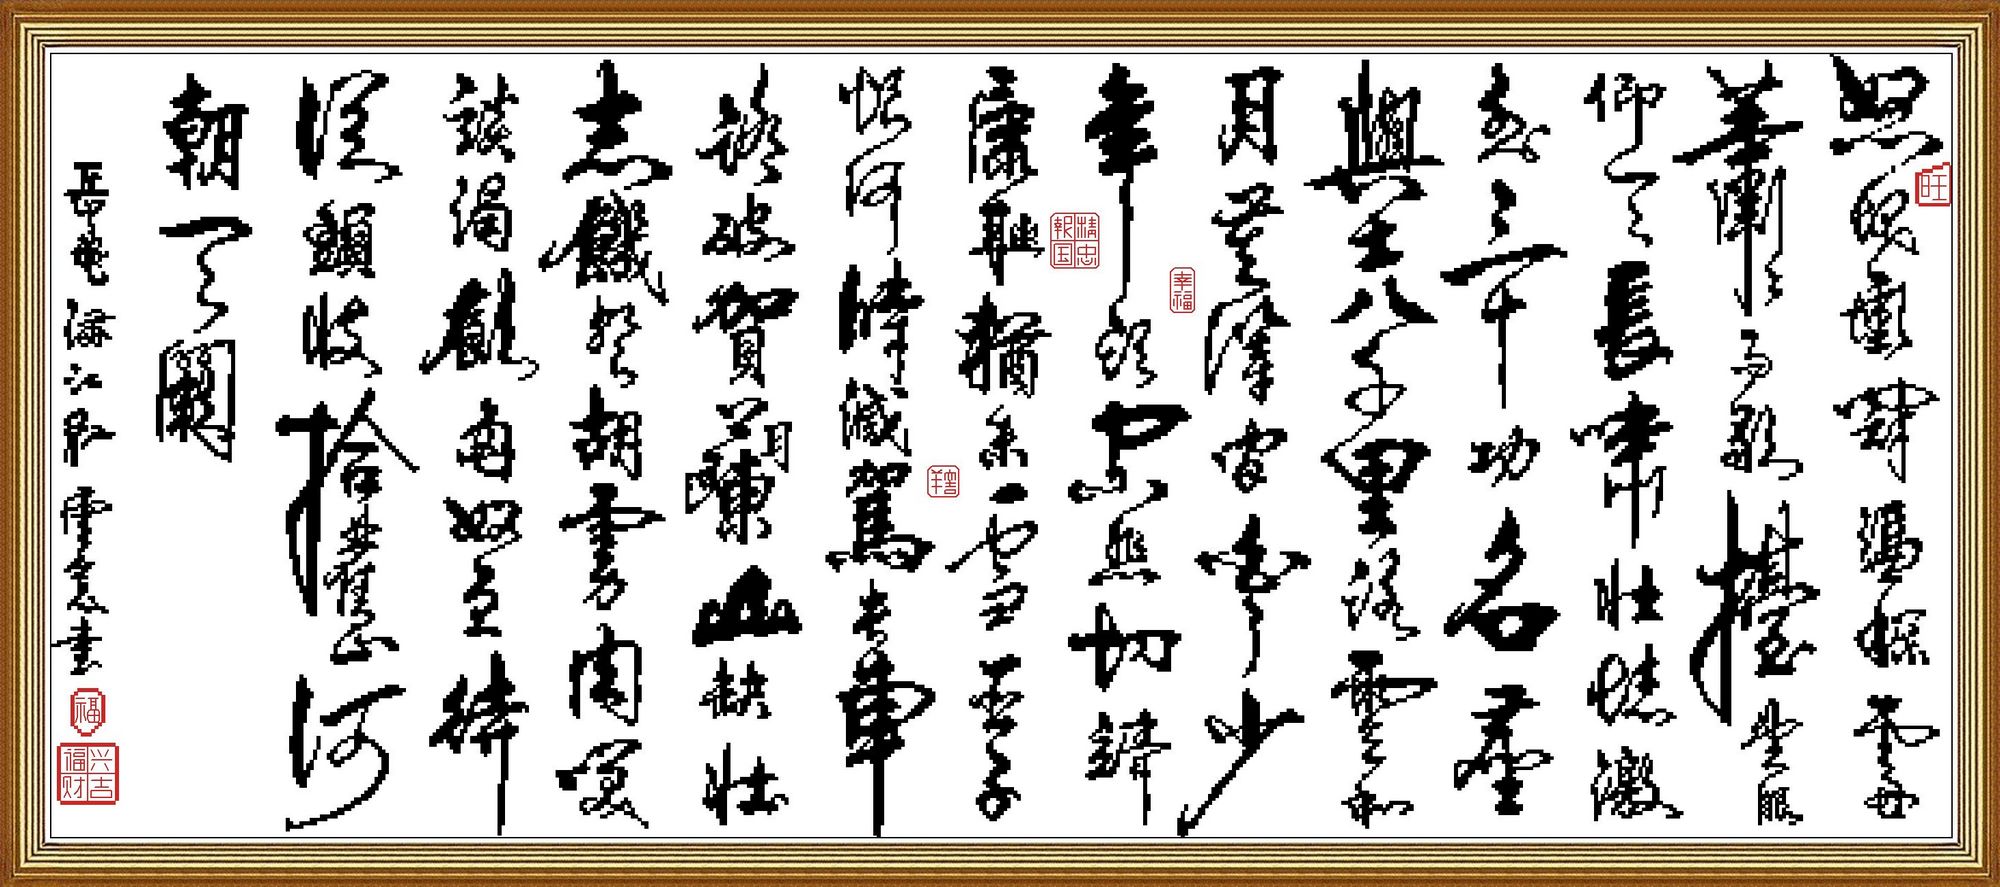 怒髮衝冠憑欄處
瀟瀟雨歇擡望眼
仰天長嘯壯懷激
烈三十功名塵
與土八千里路雲和
月莫等閒白了少
年頭空悲切靖
康恥猶未雪臣子
恨何時滅駕長車
踏破賀蘭山缺壯
志饑餐胡虜肉笑
談渴飲匈奴血待
從頭收拾舊山河
朝天闕
岳飛滿江紅書
旺
幸福
精忠報国
福
兴吉福财